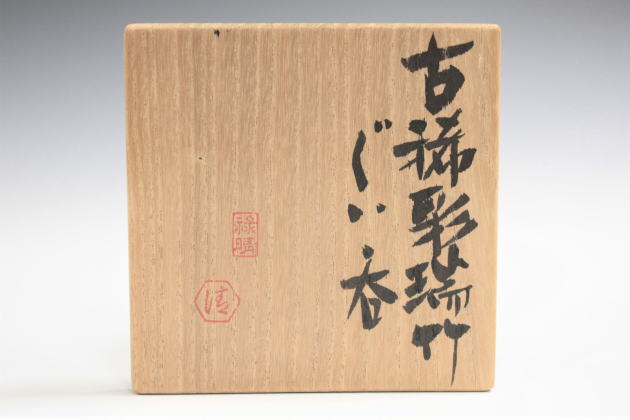 古稀彩瑞竹
ぐい呑
禄晴
清